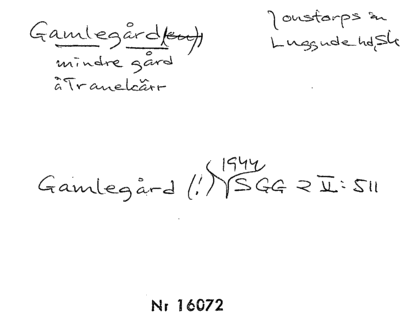 Gamlegård(en)
mindre gård
å Tranekärr
Jonstorps sn
Luggude hd, Sk
Gamlegård (!) 1944 SGG 2 II: 511
Nr 16072